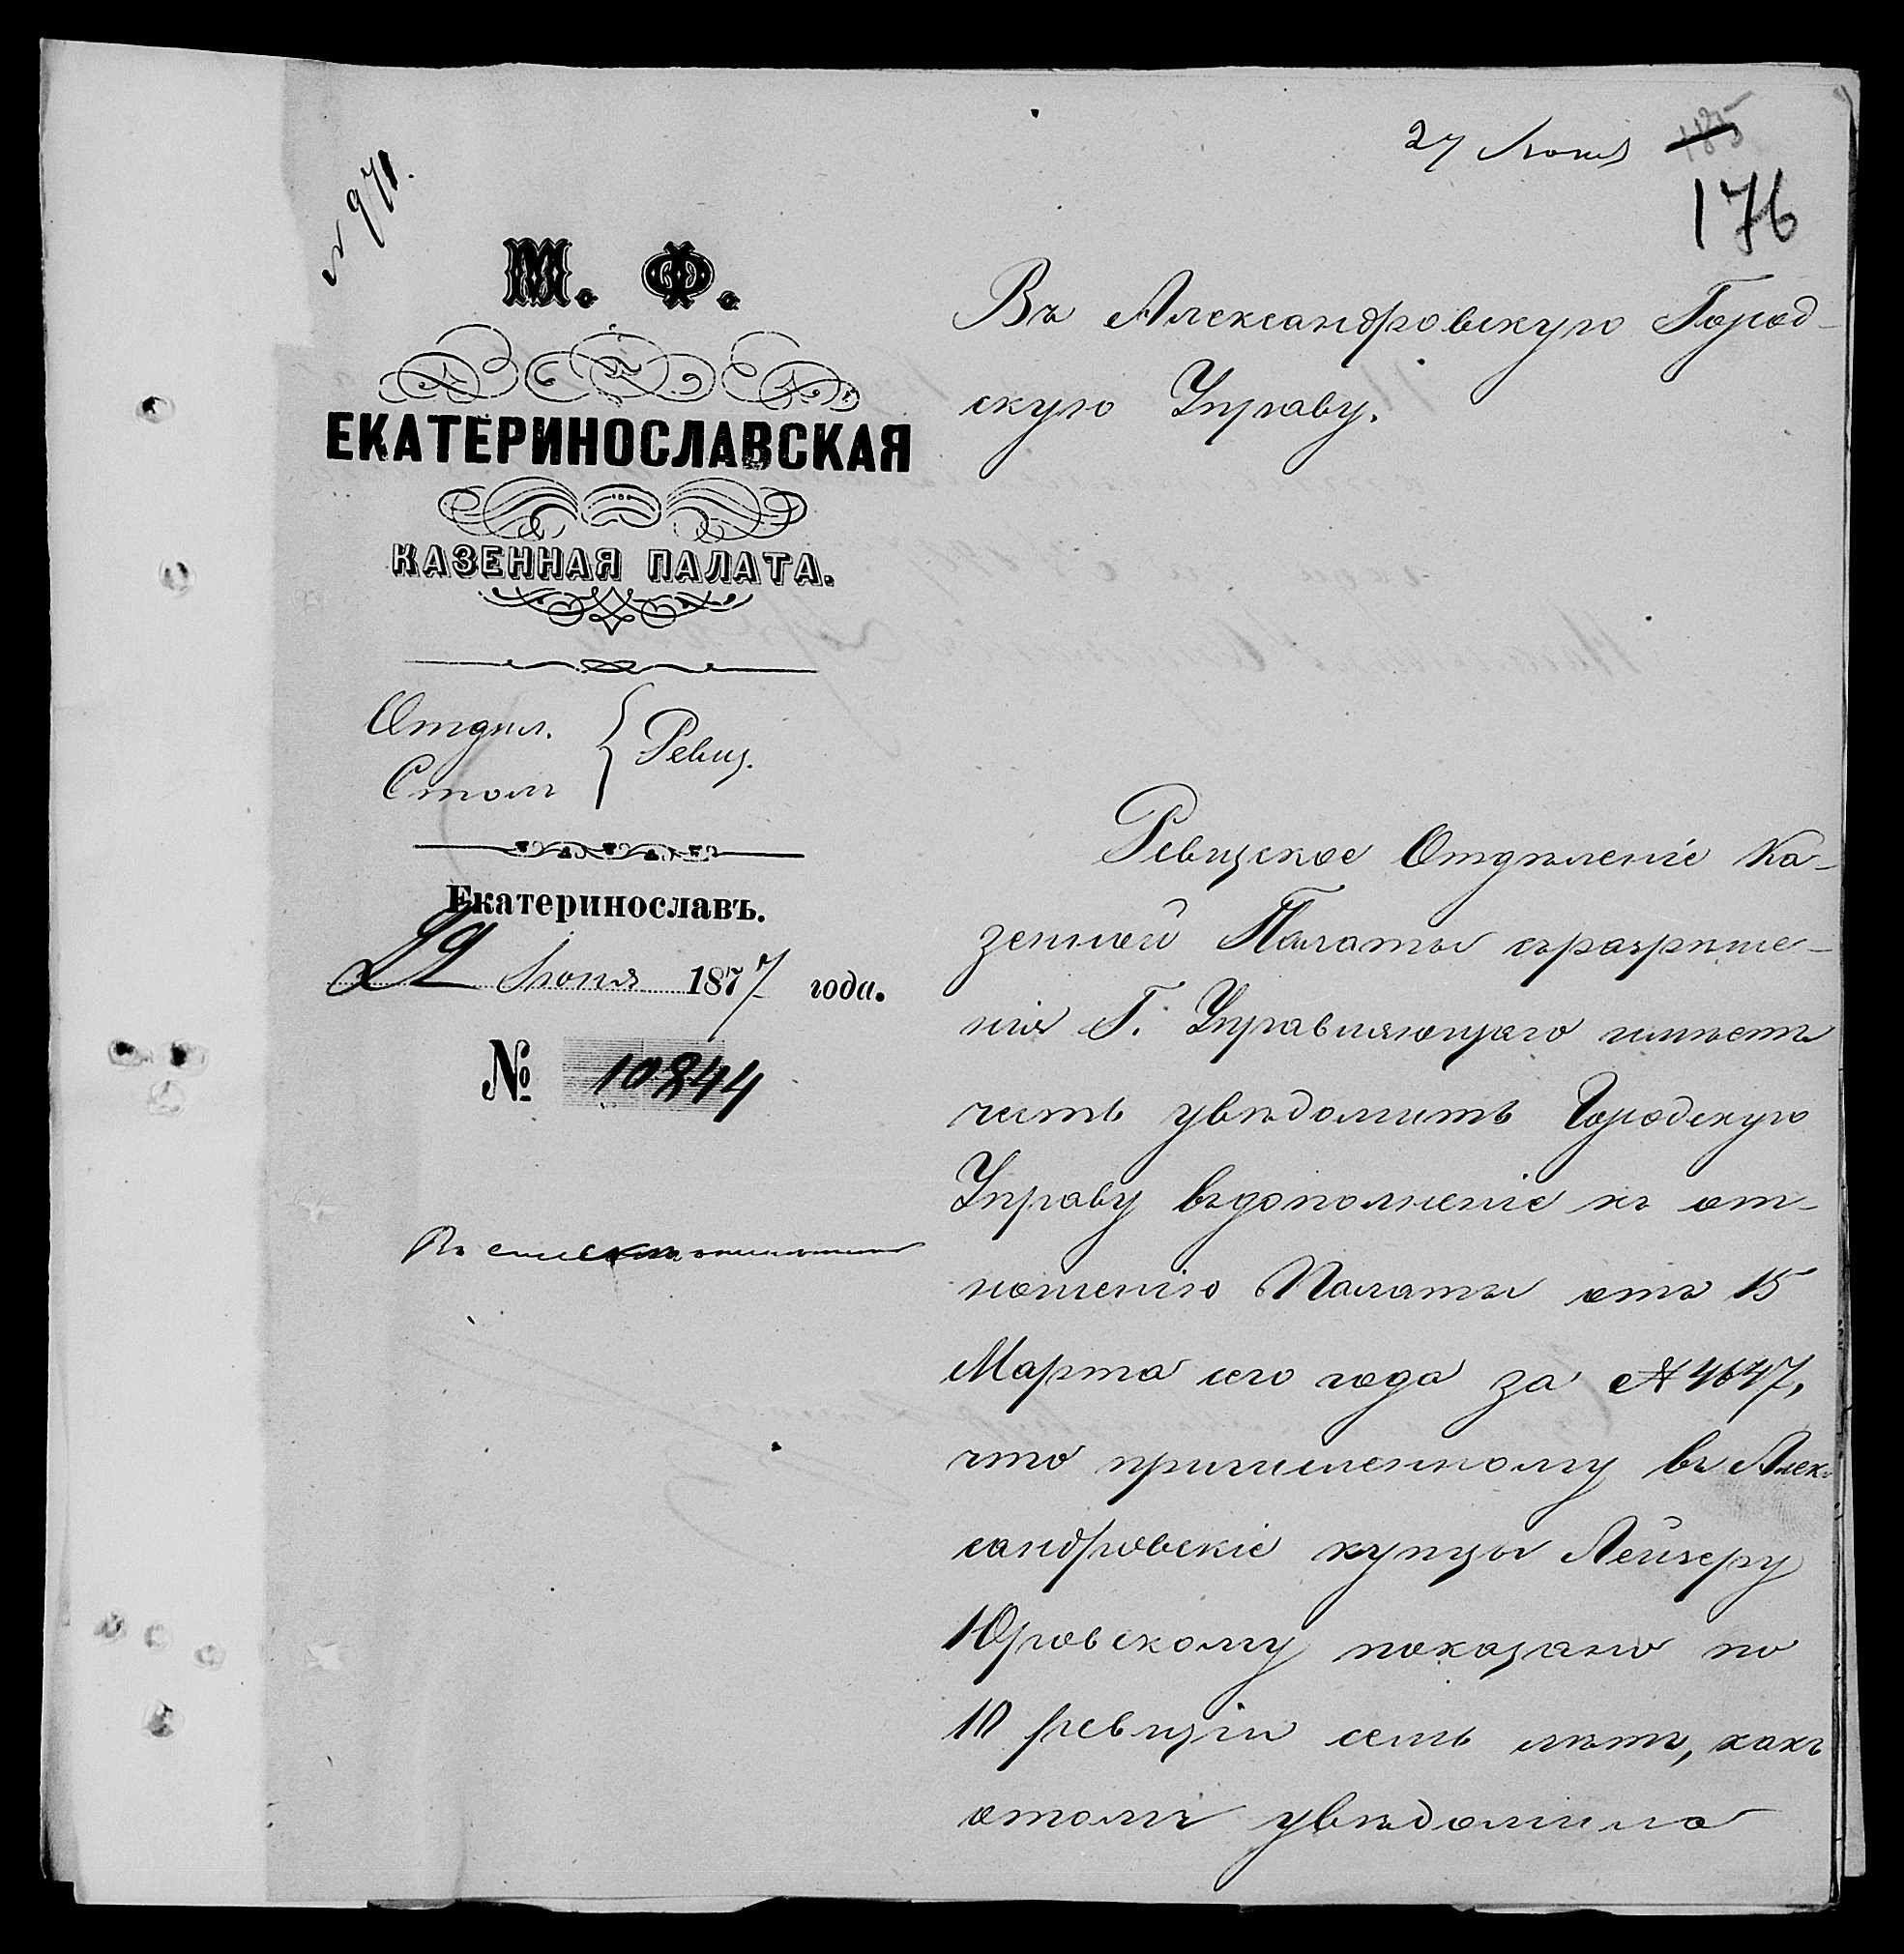 27 Іюня 185
176
№ 971.
М. Ф.
ЕКАТЕРИНОСЛАВСКАЯ
КАЗЕННАЯ ПАЛАТА.
Отдѣл.
Столъ
Ревиз.
Екатеринославъ.
22 Іюня 1877 года.
№ 10844
Въ
Въ Александровскую Город-
скую Управу.
Ревизское Отдѣленіе Ка-
зенной Палаты съразрѣше-
нія Г. Управляющаго имѣетъ
честь увѣдомить Городскую
Управу въдополненіе къ от-
ношенію Палаты отъ 15
Марта сего года за № 4647,
что причисленному въ Алек-
сандровскіе купцы Лейзеру
Юровскому показано по
10 ревизіи семь лѣтъ, какъ
отомъ увѣдомила